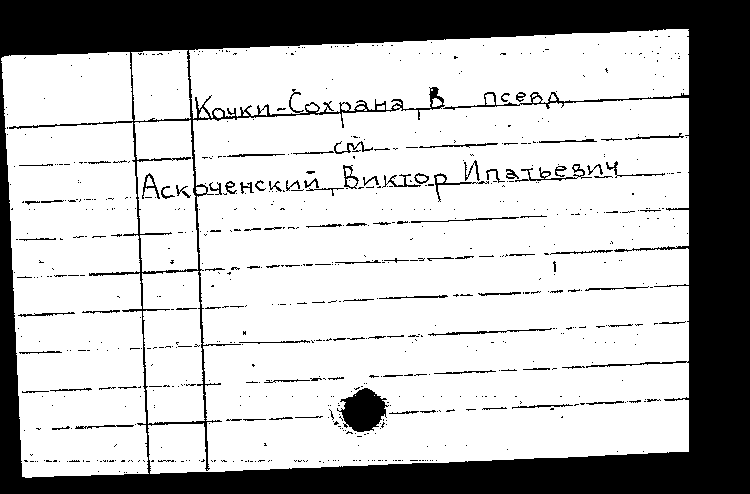 Кочки-Сохрана, В. псевд.
см.
Аскоченский, Виктор Ипатьевич